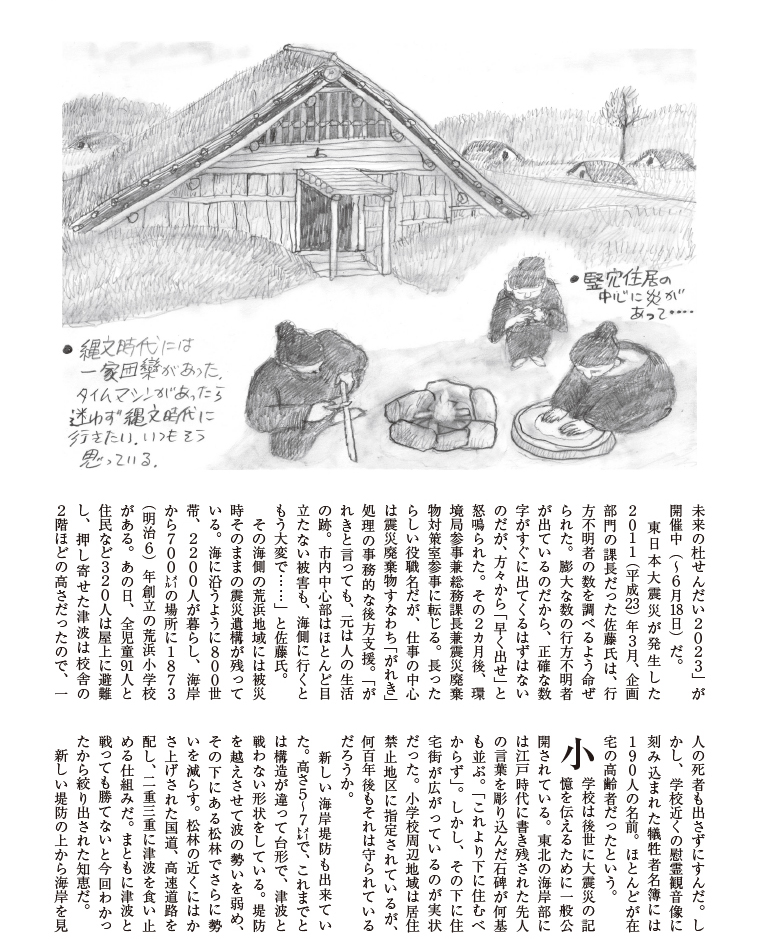 ●竪穴住居の
中心に炎が
あって‥‥
●縄文時代には
一家団欒があった。
タイムマシンがあったら
迷わず縄文時代に
行きたい。いつもそう
思っている。
未来の杜せんだい2023」が
開催中（～6月18日）だ。
東日本大震災が発生した
2011（平成23）年3月、企画
部門の課長だった佐藤氏は、行
方不明者の数を調べるよう命ぜ
られた。膨大な数の行方不明者
が出ているのだから、正確な数
字がすぐに出てくるはずはない
のだが、方々から「早く出せ」と
怒鳴られた。その2カ月後、環
境局参事兼総務課長兼震災廃棄
物対策室参事に転じる。長った
らしい役職名だが、仕事の中心
は震災廃棄物すなわち「がれき」
処理の事務的な後方支援。「が
れきと言っても、元は人の生活
の跡。市内中心部はほとんど目
立たない被害も、海側に行くと
もう大変で……」と佐藤氏。
その海側の荒浜地域には被災
時そのままの震災遺構が残って
いる。海に沿うように800世
帯、2200人が暮らし、海岸
から700㍍の場所に1873
（明治6）年創立の荒浜小学校
がある。あの日、全児童91人と
住民など320人は屋上に避難
し、押し寄せた津波は校舎の
2階ほどの高さだったので、一
人の死者も出さずにすんだ。し
かし、学校近くの慰霊観音像に
刻み込まれた犠牲者名簿には
190人の名前。ほとんどが在
宅の高齢者だったという。
小学校は後世に大震災の記
憶を伝えるために一般公
開されている。東北の海岸部に
は江戸時代に書き残された先人
の言葉を彫り込んだ石碑が何基
も並ぶ。「これより下に住むべ
からず」。しかし、その下に住
宅街が広がっているのが実状
だった。小学校周辺地域は居住
禁止地区に指定されているが、
何百年後もそれは守られている
だろうか。
新しい海岸堤防も出来てい
た。高さ5～7㍍で、これまでと
は構造が違って台形で、津波と
戦わない形状をしている。堤防
を越えさせて波の勢いを弱め、
その下にある松林でさらに勢
いを減らす。松林の近くにはか
さ上げされた国道、高速道路を
配し、二重三重に津波を食い止
める仕組みだ。まともに津波と
戦っても勝てないと今回わかっ
たから絞り出された知恵だ。
新しい堤防の上から海岸を見